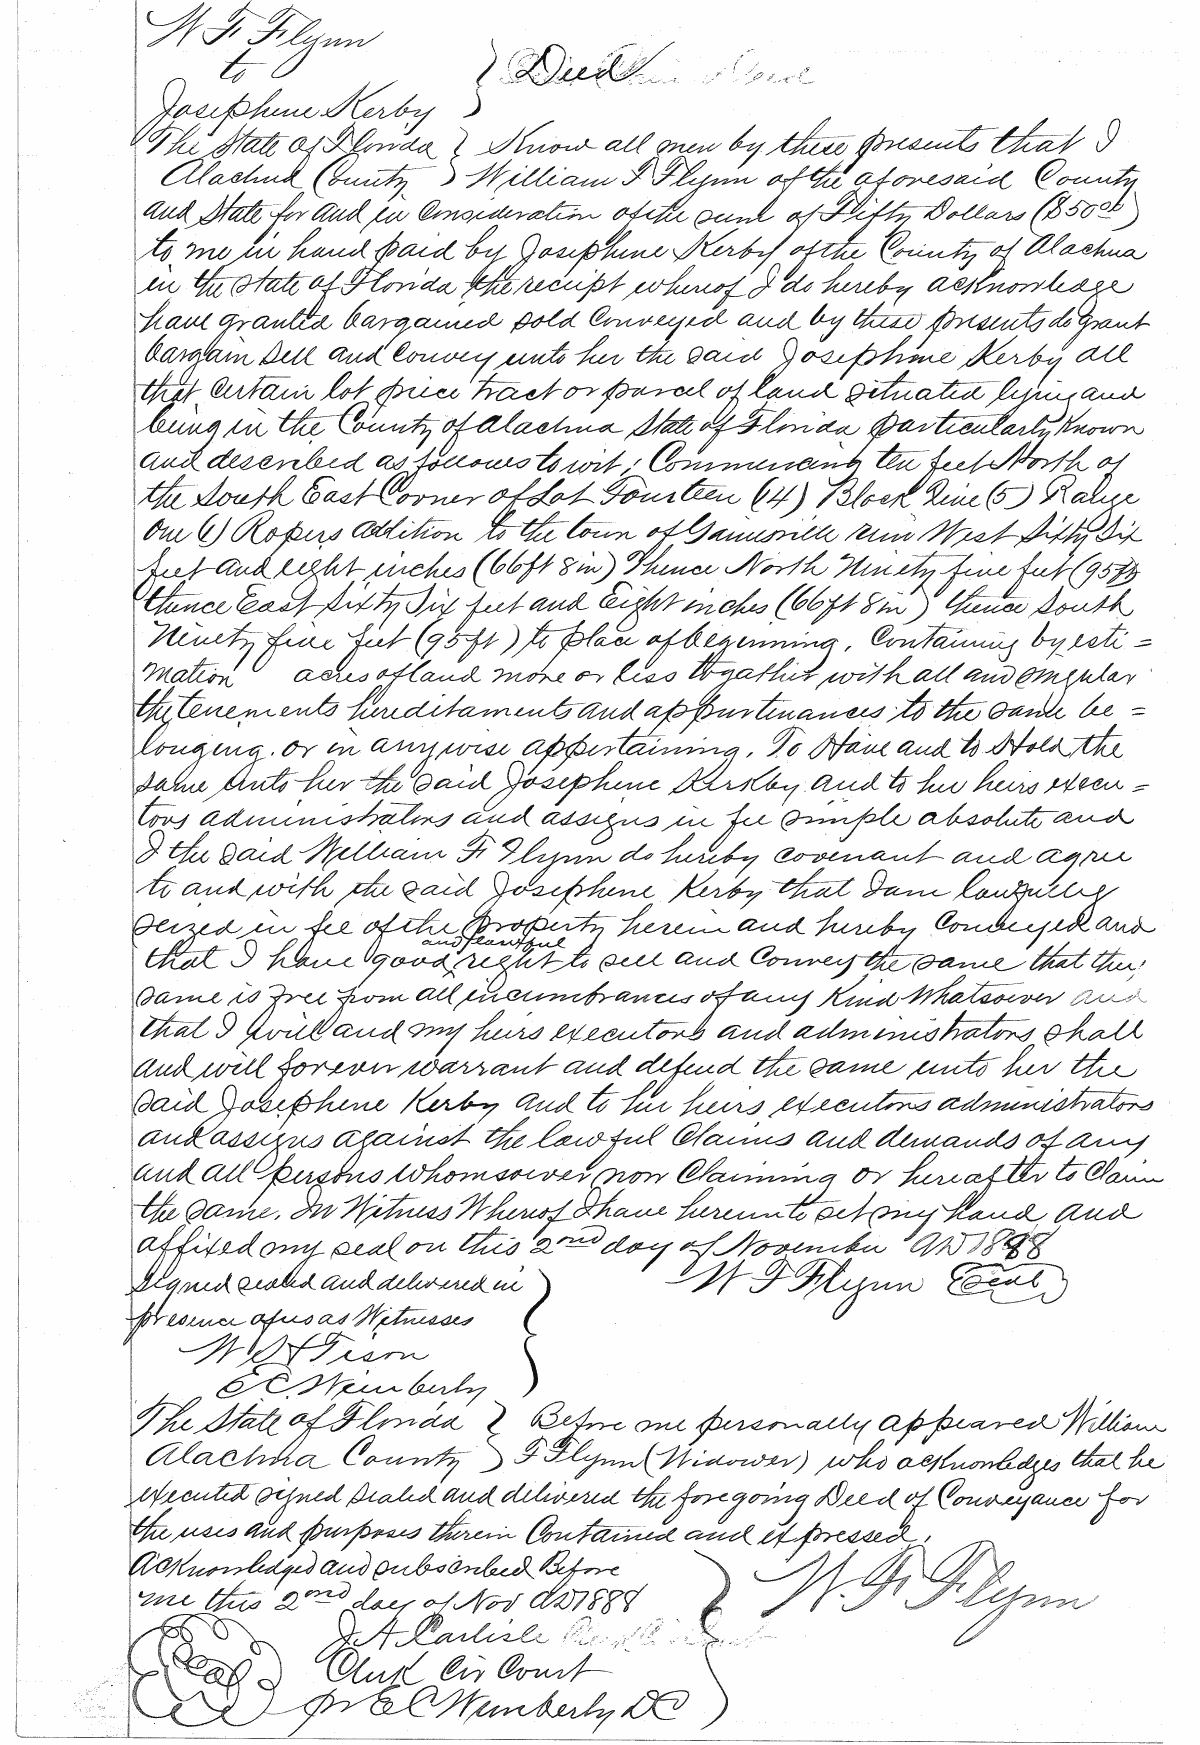 W F Flynn
to } Deed
Josephine Kerby
The State of Florida } Know all men by these presents that I
Alachua County } William F Flynn of the aforesaid County
and State for and in Consideration of the sum of Fifty Dollars ($50.00)
to me in hand paid by Josephine Kerby of the County of Alachua
in the State of Florida the receipt whereof I do hereby acknowledge
have granted bargained sold Conveyed and by these presents do Grant
bargain Sell and Convey unto her the said Josephine Kerby all
that certain lot piece tract or parcel of land situated lying and
being in the County of Alachua State of Florida particularly Known
and described as follows to wit; Commencing ten feet North of
the South East Corner of Lot Fourteen (14) Block Five (5) Range
One (1) Ropers addition to the town of Gainesville run West Sixty Six
feet and eight inches (66ft 8in) Thence North Ninety five feet (95ft)
thence East Sixty Six feet and Eight inches (66ft 8in) thence South
Ninety five feet (95ft) to place of beginning. Containing by esti=
mation acres of land more or less togather with all and singular
the tenements hereditaments and appurtinances to the same be=
longing. or in anywise appertaining. To Have and to Hold the
same unto her the said Josephine Kerkby and to her heirs execu=
tors administrators and assigns in fee simple absolute and
I the said William F Flynn do hereby covenant and agree
to and with the said Josephine Kerby that I am lawfully
seized in fee of the property herein and hereby Conveyed and
that I have good and lawful right to sell and Convey the same that the
same is free from all incumbrances of any Kind Whatsoever and
that I will and my heirs executors and administrators shall
and will forever warrant and defend the same unto her the
said Josephine Kerby and to her heirs executors administrators
and assigns against the lawful Claims and demands of any
and all persons whomsoever now Claiming or hereafter to Claim
the same. In Witness Whereof I have hereunto set my hand and
affixed my seal on this 2nd day of November AD 1888
Signed sealed and delivered in } W F Flynn (Seal)
presence of us as Witnesses
W H Tison
E C. Wimberly
The State of Florida } Before me personally appeared William
Alachua County } F Flynn (Widower) who acknowledges that he
executed signed sealed and delivered the foregoing Deed of Conveyance for
the uses and purposes therein Contained and expressed.
Acknowledged and subscribed Before } W. F. Flynn
me this 2nd day of Nov AD 1888
J. A. Carlisle
Clerk Cir Court
pr E C Wimberly DC
Seal